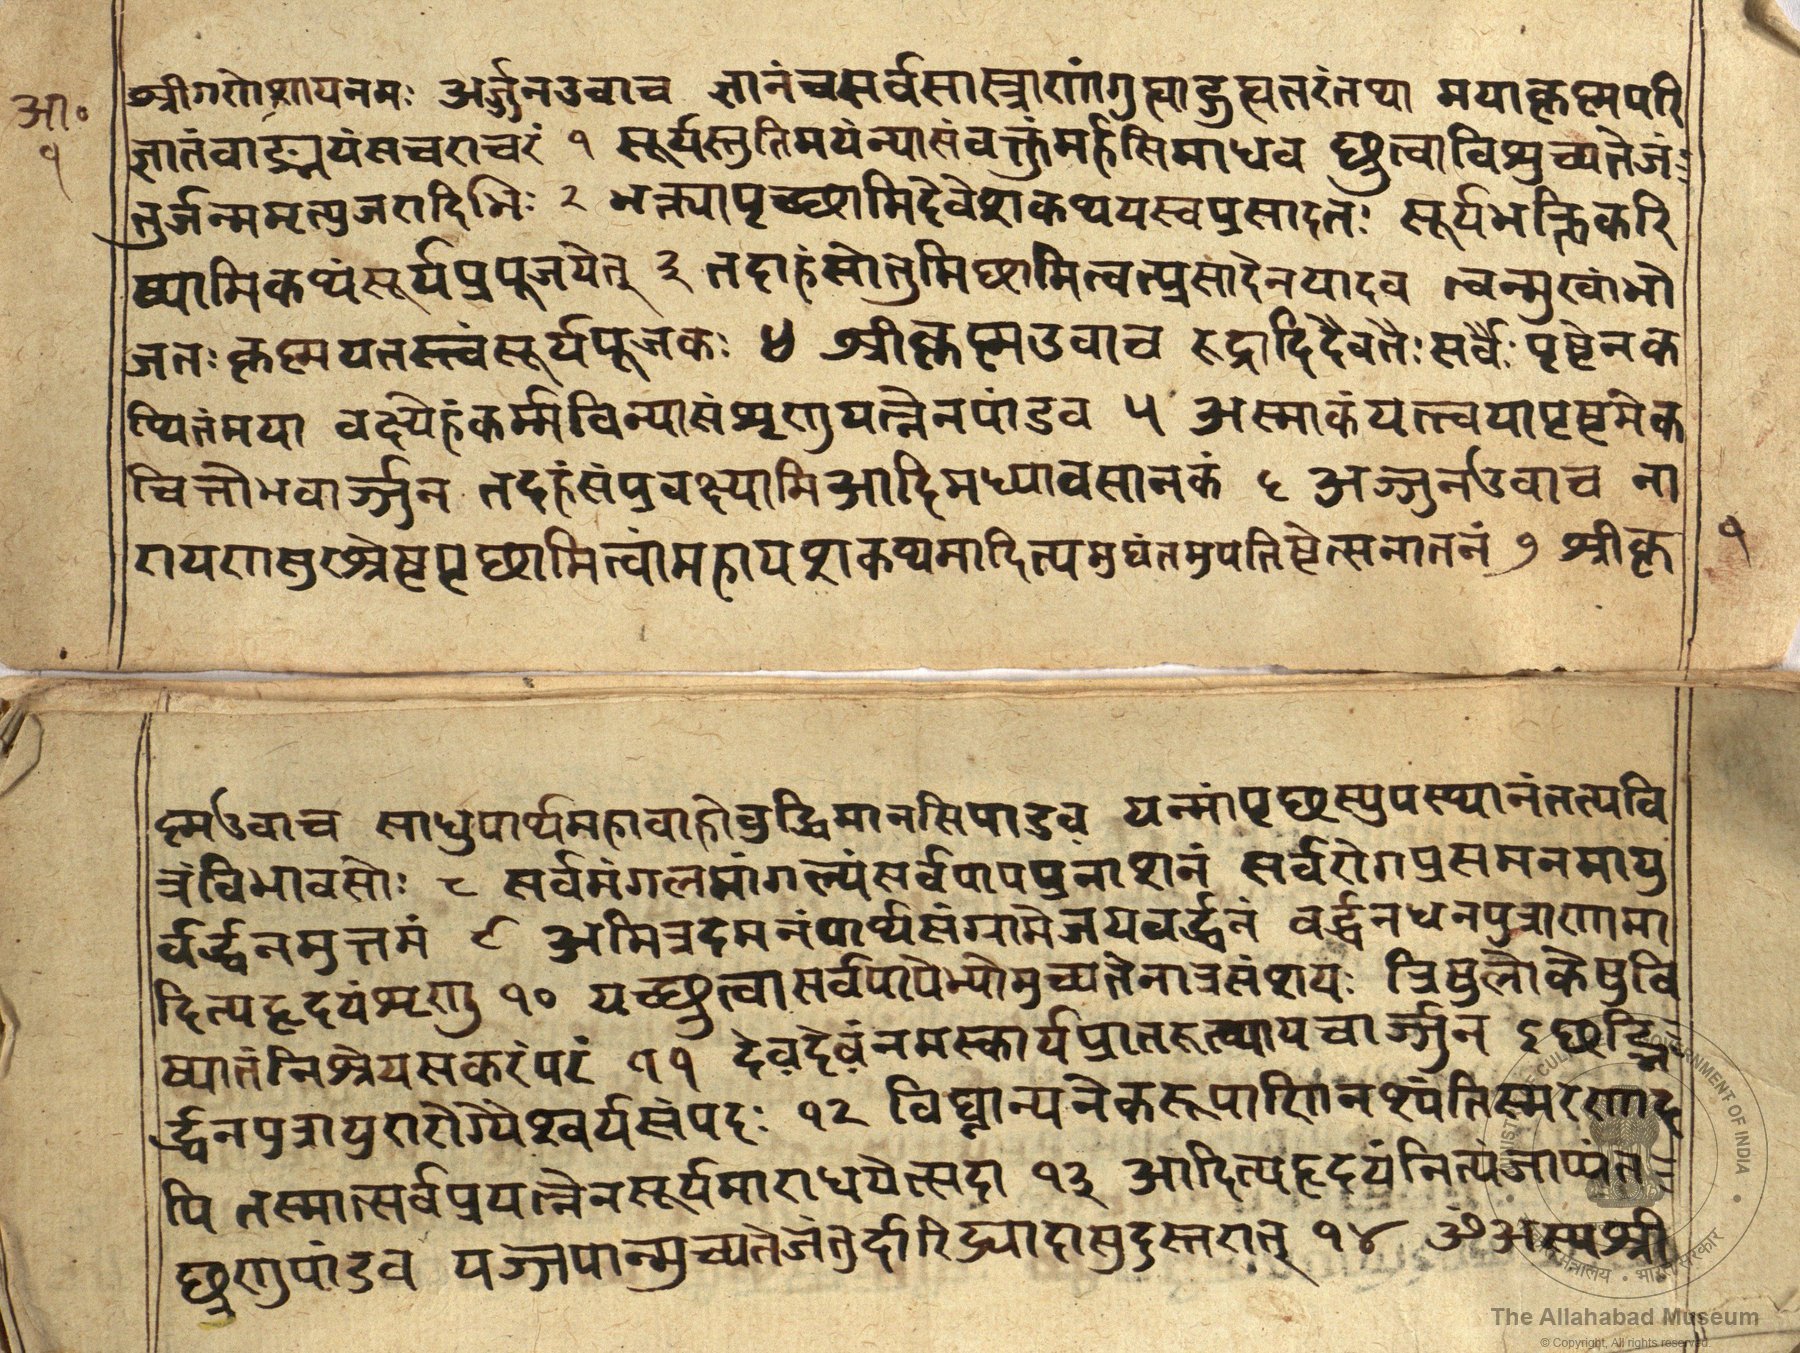 श्रीगणेशायनमः अर्ज्जुनउवाच ज्ञानंचसर्वसास्त्राणांगुह्याद्गुह्यतरंतथा मयाकृष्मपरि
आ॰
१
ज्ञातंवाङ्मयंसचराचरं १ सूर्यस्तुतिमयंन्यासंवक्तुंमर्हसिमाधव छ्रुत्वाविमुच्यतेजं
तुर्जन्ममृत्युजरादिभिः २ भक्त्यापृच्छामिदेवेशकथयस्वप्रसादतः सूर्यभक्तिकरि
ष्यामिकथंसूर्यप्रपूजयेत् ३ तदाहंस्रोतुमिछामित्वत्प्रसादेनयादव त्वन्मुखांभो
जतः कृष्मयतस्त्वंसूर्यपूजकः ४ श्रीकृष्मउवाच रुद्रादिदैवतैः सर्वैः पृष्टेनक
थितंमया वक्ष्येहंकर्म्मविन्यासंशृणुयत्नेनपांडव ५ अस्माकंयत्त्वयापृष्टमेक
चित्तोभवार्ज्जुन तदहंसंप्रवक्ष्यामिआदिमध्यावसानकं ६ अर्ज्जुनउवाच ना
रायणसुरश्रेष्टपृछामित्वांमहायशकथमादित्यमुद्यंतमुपतिष्टेत्सनातनं ७ श्रीकृ
१
ष्मउवाच साधुपार्थमहावाहोवुद्धिमानसिपाडव यन्मांपृछस्युपस्थानंतत्पवि
त्रंविभावसोः ८ सर्वमंगलमांगल्यंसर्वपापप्रनाशनं सर्वरोगप्रसमनमायु
र्वर्द्धनमुत्तमं ९ अमित्रदमनंपार्थसंग्रामेजयवर्द्धनं वर्द्धनधनपुत्राणामा
दित्यहृदयंशृणु १० यच्छ्रुत्वासर्वपापेभ्योमुच्यतेनात्रसंशयः त्रिषुलोकेषुवि
ख्यातंनिश्रेयसकरंपरं ११ देवदेवंनमस्कार्यप्रातरूत्थायचार्ज्जुन
र्द्धनपुत्रायुरारोग्यैश्वर्यसंपदः १२ विघ्नान्यनेकरूपाणिनश्यंतिस्मरणाद
पि तस्मात्सर्वप्रयत्नेनसूर्यमाराधयेत्सदा १३ आदित्यहृदयंनित्यंजाप्यंत
छ्रुणुपांडव यज्जपान्मुच्यतेजंतुर्दारिद्र्यादासुदुस्तरात् १४ ॐअस्यश्री
The Allahabad Museum
© Copyright, All rights reserved.